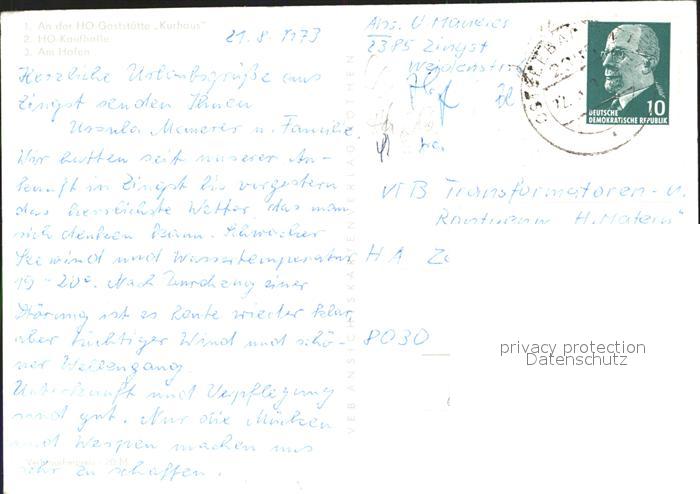 1. An der HO-Gaststätte „Kurhaus"
2. HO-Kaufhalle
3. Am Hafen
21.8.1973
Herzliche Urlaubsgrüße aus
Zingst senden Ihnen
Ursula Maurer u. Familie.
Wir hatten seit unserer An-
kunft in Zingst bis vorgestern
das herrlichste Wetter, das man
sich denken kann. Schwacher
Seewind und Wassertemperatur
19-20°. Nach Durchzug einer
Störung ist es heute wieder klar,
aber tüchtiger Wind und schö-
ner Wellengang.
Unterkunft und Verpflegung
sind gut. Nur die Mücken
und Wespen machen uns
sehr zu schaffen.
VEB ANSICHTSKARTEN VERLAG
Abs. U
2385 Zingst
OSTSEEBAD
10
DEUTSCHE
DEMOKRATISCHE REPUBLIK
VEB Transformatoren- u.
Röntgenw. „H. Matern"
HA
8030
privacy protection
Datenschutz